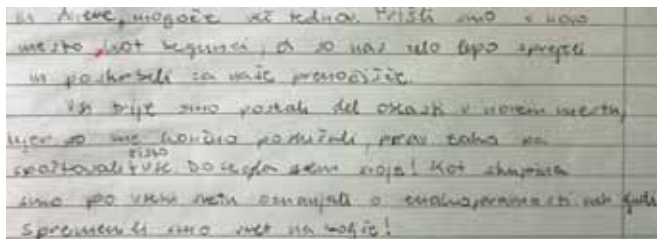 in Nievo, mogoče več tednov. Prišli smo v novo
mesto, kot begunci, a so nas zelo lepo sprejeli
in poskrbeli za naše prenočišče.
Vsi trije smo postali del oblasti v novem mestu,
kjer so me končno poslušali, prav tako pa
spoštovali tisto vse do česa sem stoji! Kot skupina
smo po vsem svetu oznanjali o enakopravnosti vseh ljudi
Spremenili smo svet na bolje!